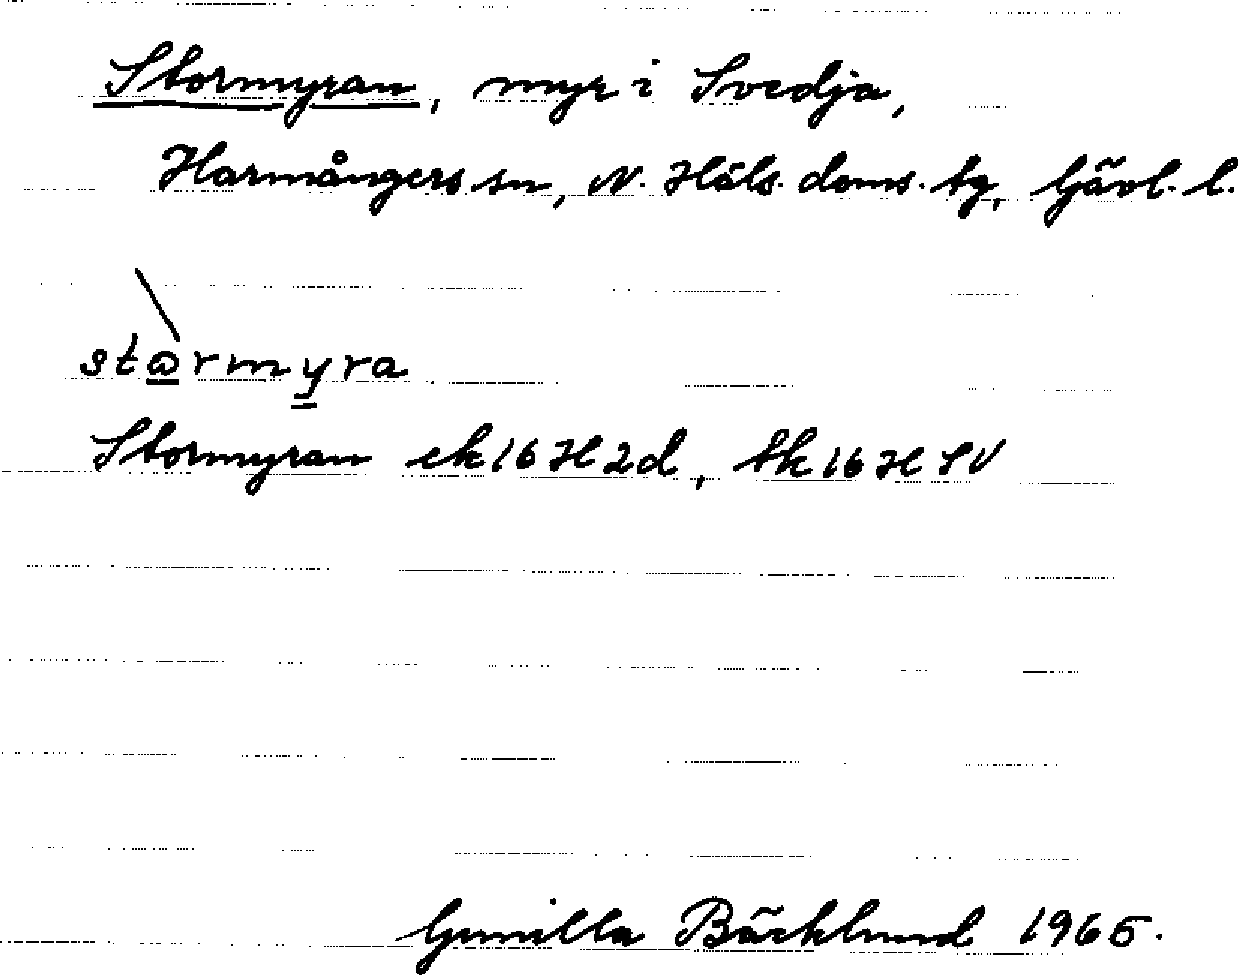 Stormyran, myr i Svedja,
Harmångers sn, N. Häls. doms. tg, Gävl. l.
stωrmyra
Stormyran ek 16 H 2d, tk 16 H SV
Gunilla Bäcklund 1965.